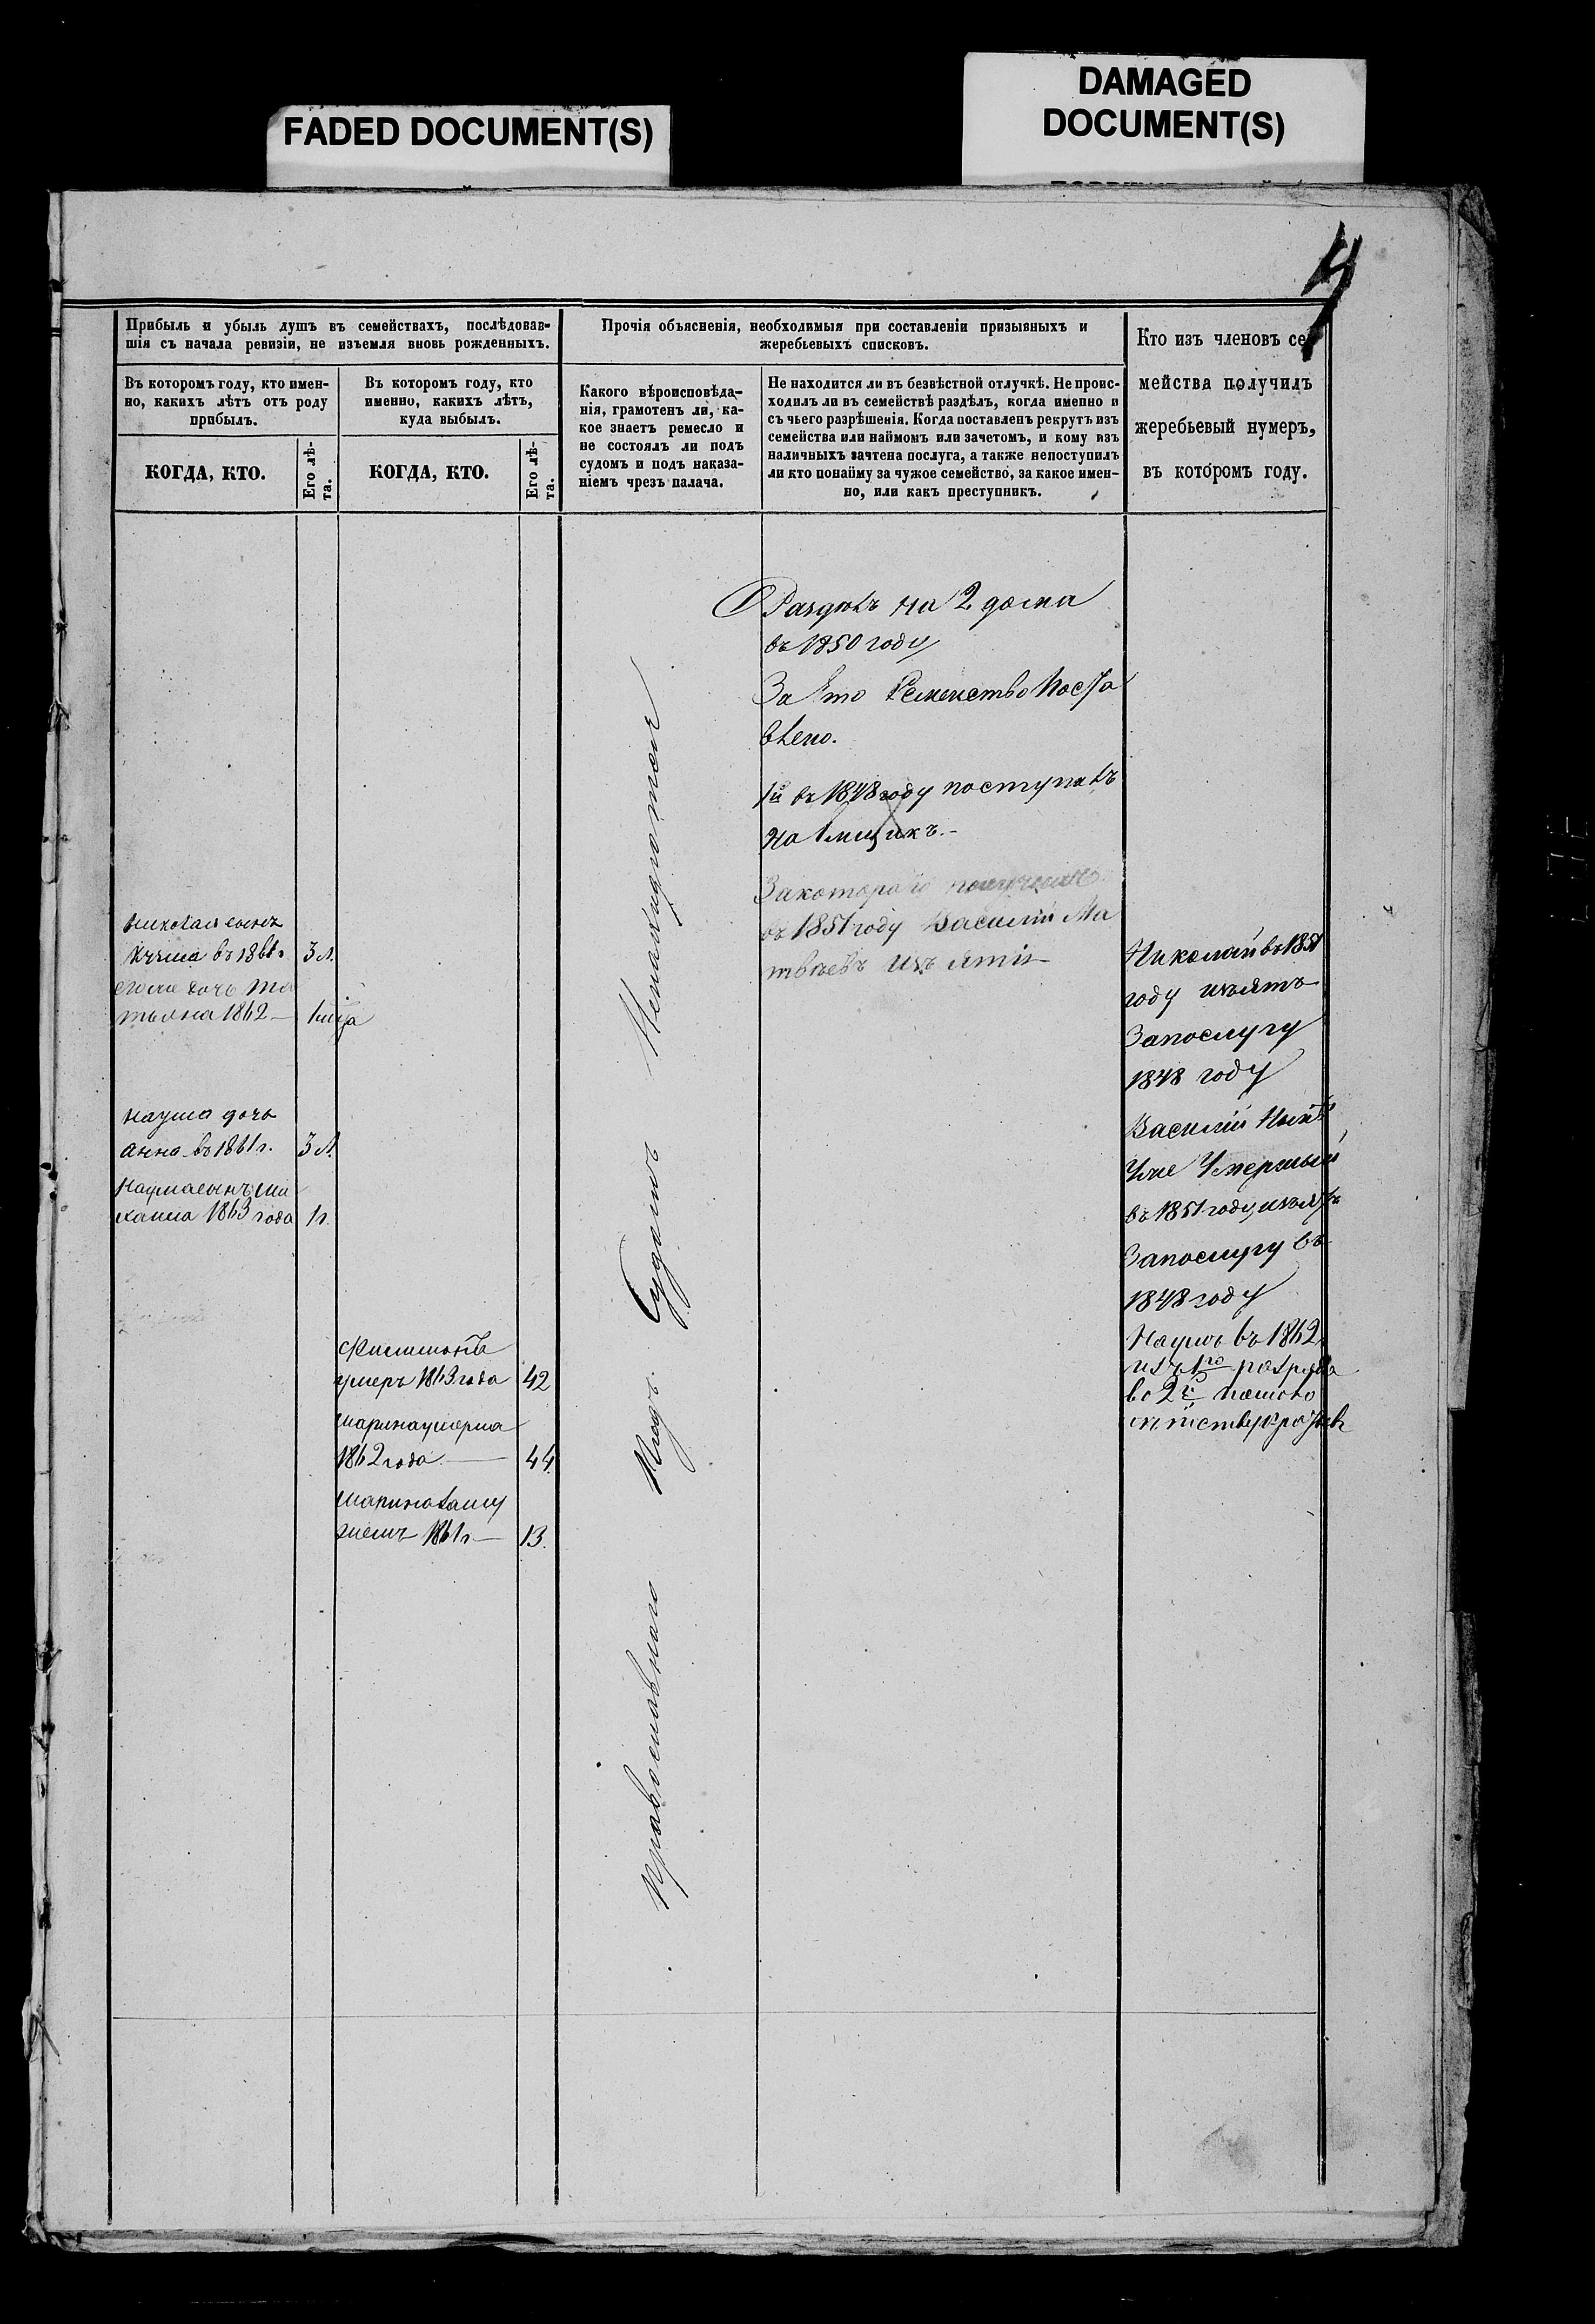 FADED DOCUMENT(S)
DAMAGED
DOCUMENT(S)
4
Прибыль и убыль душъ въ семействахъ, послѣдовав-
шія съ начала ревизіи, не изъемля вновь рожденныхъ.
Прочія объясненія, необходимыя при составленіи призывныхъ и
жеребьевыхъ списковъ.
Кто изъ членовъ се-
мейства получилъ
жеребьевый нумеръ,
въ которомъ году.
Въ которомъ году, кто имен-
но, какихъ лѣтъ отъ роду
прибылъ.
Въ которомъ году, кто
именно, какихъ лѣтъ,
куда выбылъ.
Какого вѣроисповѣда-
нія, грамотенъ ли, ка-
кое знаетъ ремесло и
не состоялъ ли подъ
судомъ и подъ наказа-
ніемъ чрезъ палача.
Не находится ли въ безвѣстной отлучкѣ. Не проис-
ходилъ ли въ семействѣ раздѣлъ, когда именно и
съ чьего разрѣшенія. Когда поставленъ рекрутъ изъ
семейства или наймомъ или зачетомъ, и кому изъ
наличныхъ зачтена послуга, а также непоступилъ
ли кто понайму за чужое семейство, за какое имен-
но, или какъ преступникъ.
КОГДА, КТО.
Его лѣ-
та.
КОГДА, КТО.
Его лѣ-
та.
Николая сынъ
въ 186 3 л.
дочь Та
тьяна 1862 — 1
Наума дочь
анна въ 1861 г. 3 л.
Наума сынъ Ми
хаила 1863 года 1 г.
Филимонъ
умеръ 1863 года 42
Марина умерла
1862 года — 44
Марина
1861 г — 13.
Православнаго Подъ Судомъ
Раздѣлъ на 2 дома
въ 1850 году
За Это Семейство Поста
влено.
1й въ 1848 году поступилъ
Наѣмщикъ.-
Закотораго
въ 1851 году Василій Ма
твѣевъ
Николай въ 1851
году изъятъ
Запослугу
1848 году
Василій
Уже Умершый
въ 1851 году изъятъ
Запослугу въ
1848 году
Наумъ въ 1862
изъ 1го разряда
во 2й